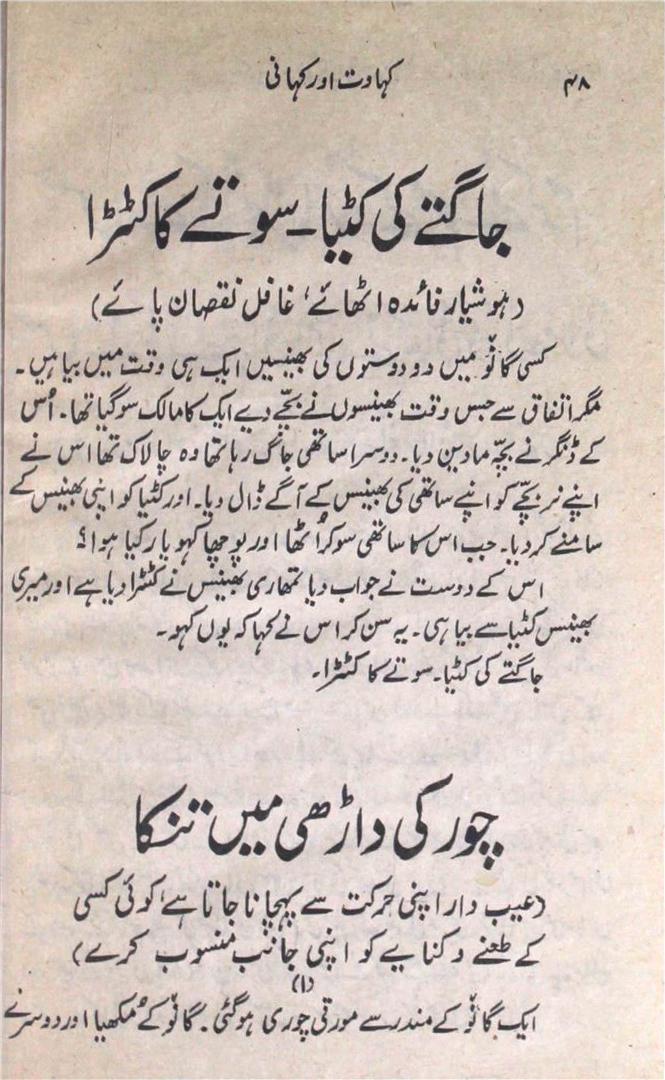 ۴۸
کہاوت اور کہانی
جاگتے کی کٹیا۔ سوتے کا کٹڑا
(ہوشیار فائدہ اٹھائے، غافل نقصان پائے)
کسی گانوٗ میں دو دوستوں کی بھینسیں ایک ہی وقت میں بیاہیں۔
مگر اتفاق سے جس وقت بھینسوں نے بچّے دیے ایک کا مالک سو گیا تھا۔ اُس
کے ڈنگر نے بچّہ مادین دیا۔ دوسرا ساتھی جاگ رہا تھا وہ چالاک تھا اس نے
اپنے نر بچّے کو اپنے ساتھی کی بھینس کے آگے ڈال دیا۔ اور کٹیا کو اپنی بھینس کے
سامنے کر دیا۔ جب اس کا ساتھی سو کر اُٹھا اور پوچھا کہو یار کیا ہوا؟
اس کے دوست نے جواب دیا تمھاری بھینس نے کٹڑا دیا ہے اور میری
بھینس کٹیا سے بیاہی۔ یہ سن کر اس نے کہا کہ یوں کہو۔
جاگتے کی کٹیا۔ سوتے کا کٹڑا۔
چور کی داڑھی میں تنکا
(عیب دار اپنی حرکت سے پہچانا جاتا ہے، کوئی کسی
کے طعنے و کنایے کو اپنی جانب منسوب کرے)
(۱)
ایک گانوٗ کے مندر سے مورتی چوری ہو گئی۔ گانوٗ کے مُکھیا اور دوسرے